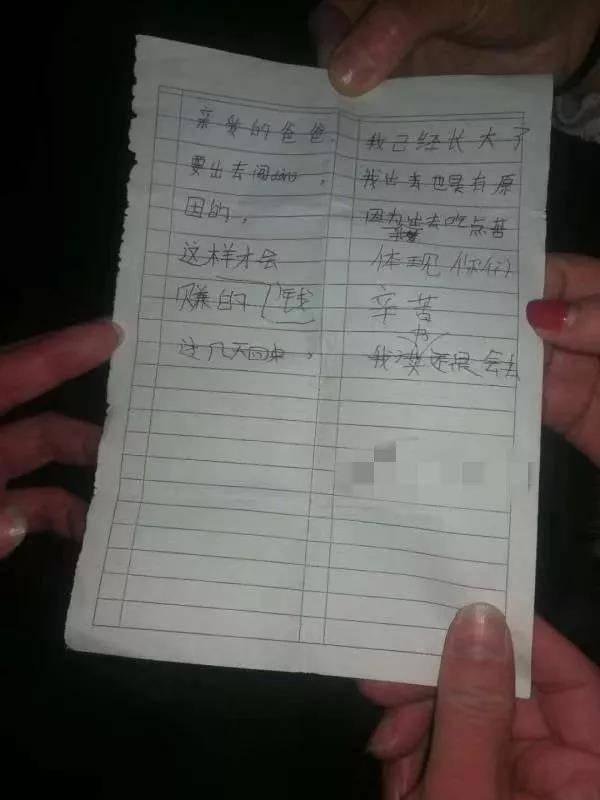 亲爱的爸爸 我已经长大了
要出去闯, 我出去也是有原
因的, 因为出去吃点苦
这样才会 体现你们
赚的钱 辛苦
这几天回来, 我 还是会去